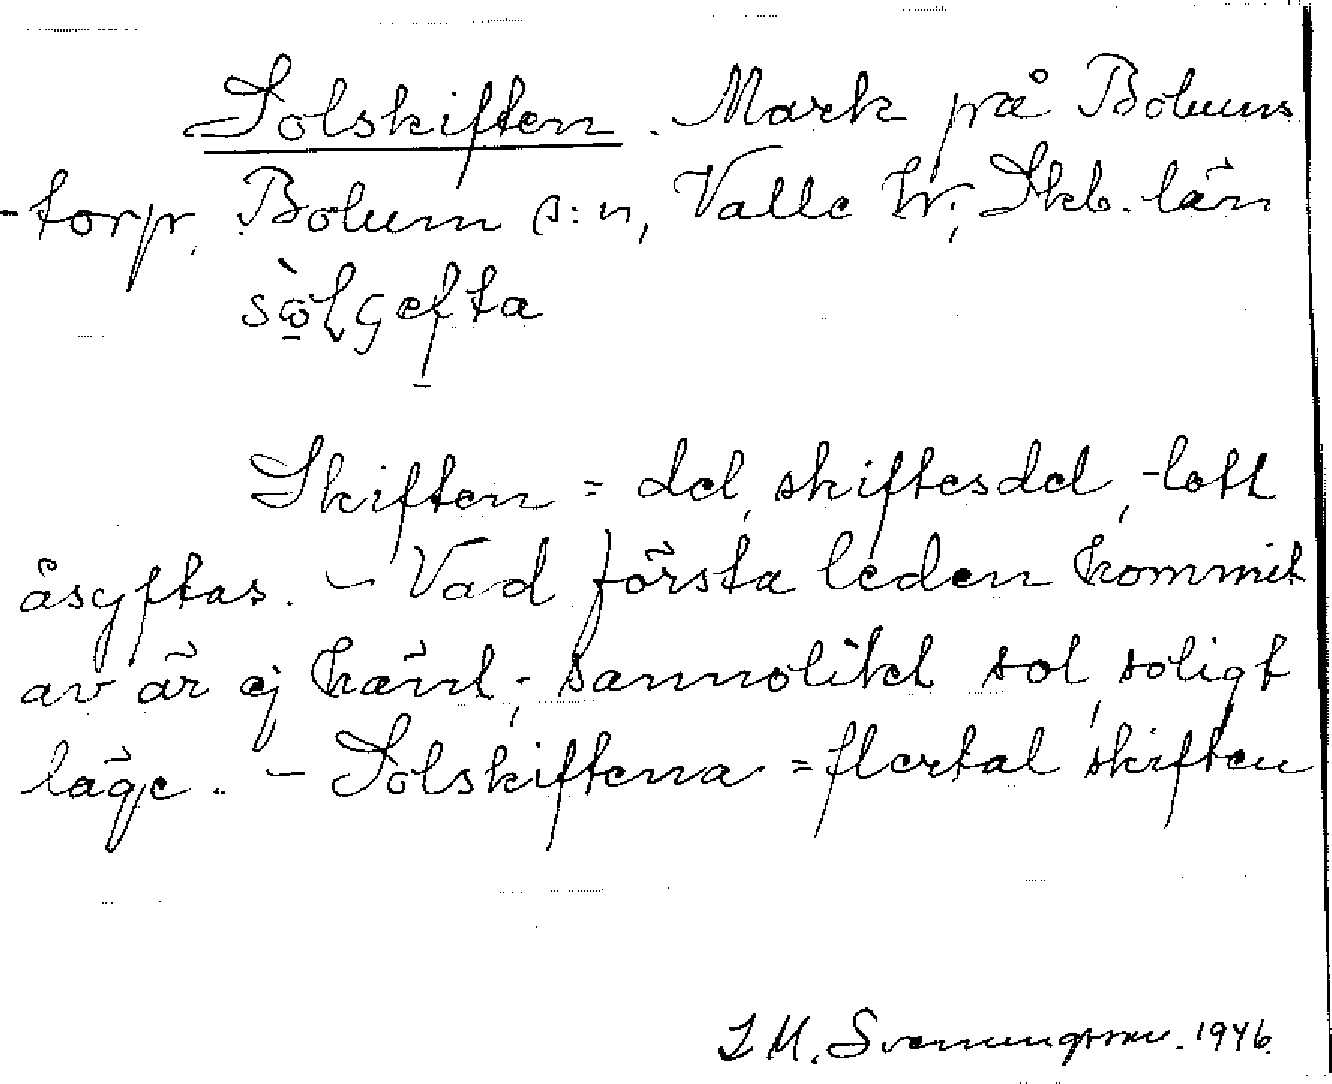 Solskiften. Mark på Bolums
-torp, Bolum s:n, Valle hr; Skb. län
sòlçefta
Skiften = del, skiftesdel, -lott
åsyftas. - Vad första leden kommit
av är ej känt; sannolikt sol, soligt
läge. - Solskiftena = flertal skiften
Svenungsson. 1946.